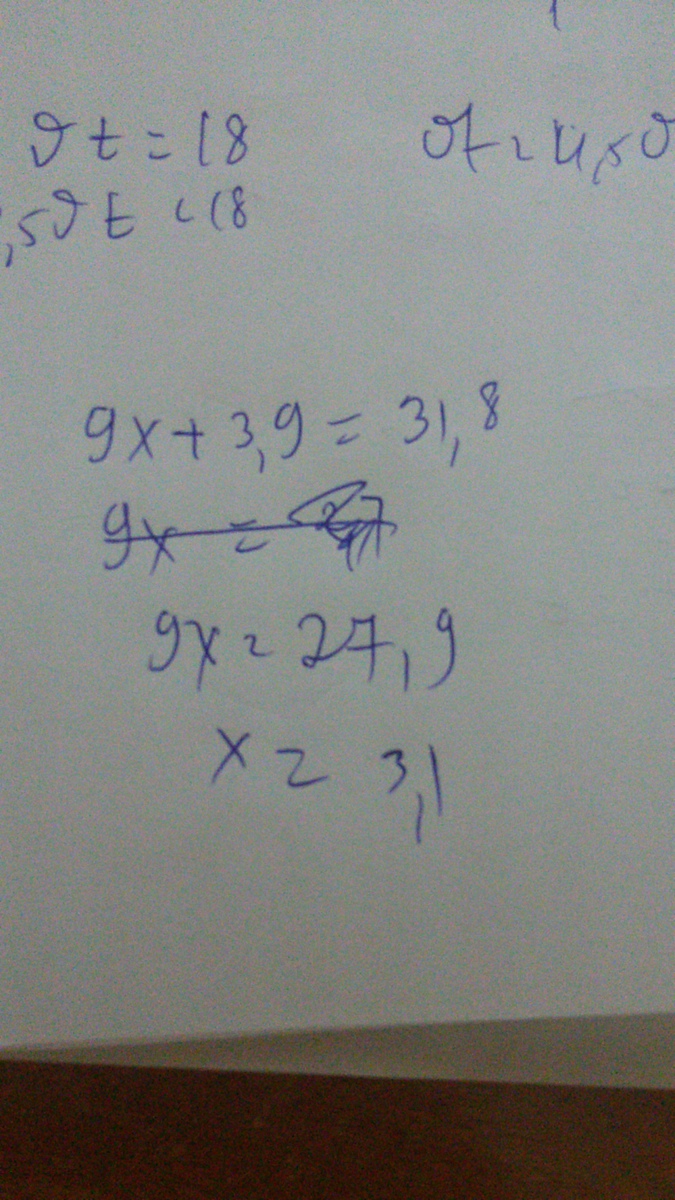 vt = 18
,5vt = 18
9x + 3,9 = 31,8
9x = 27
9x = 27,9
x = 3,1